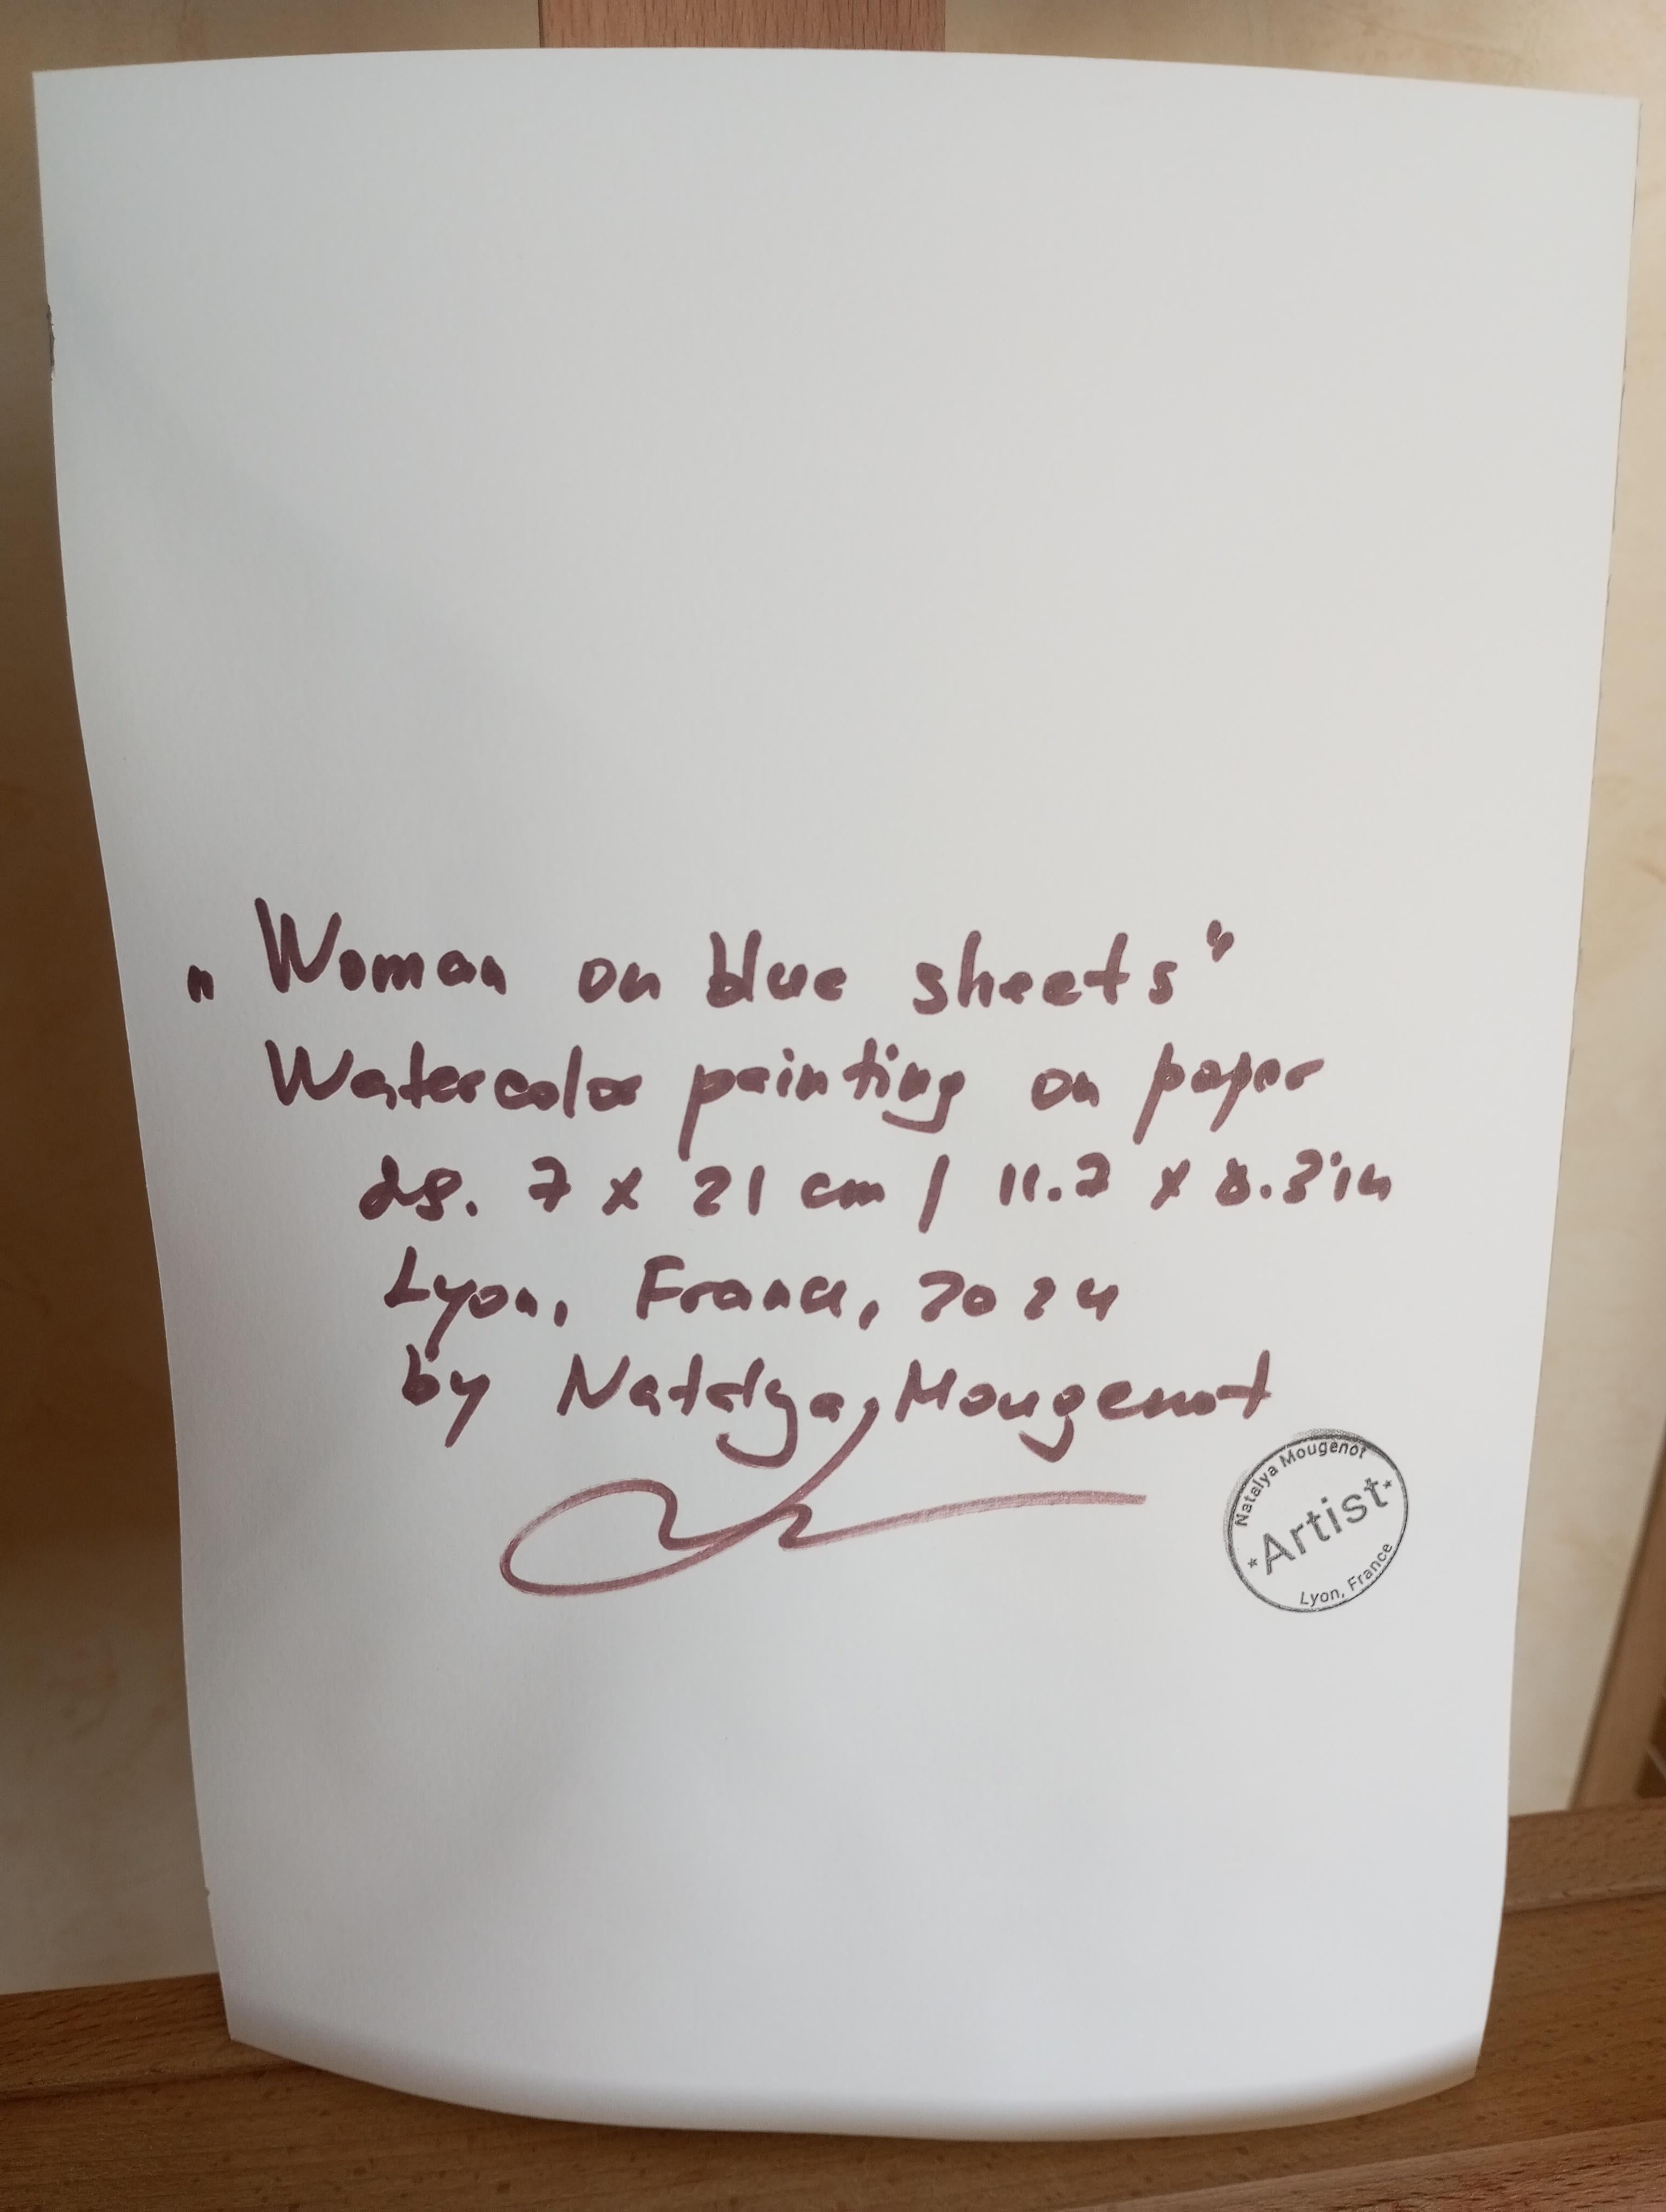 „Woman on blue sheets“
Watercolor painting on paper
29. 7 x 21 cm / 11.7 x 8.3 in
Lyon, France, 2024
by Natalya Mougenot
Natalya Mougenot
*Artist*
Lyon, France